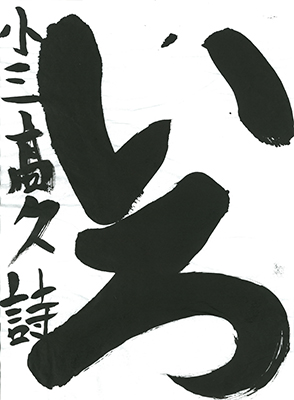 いろ
小三高久詩